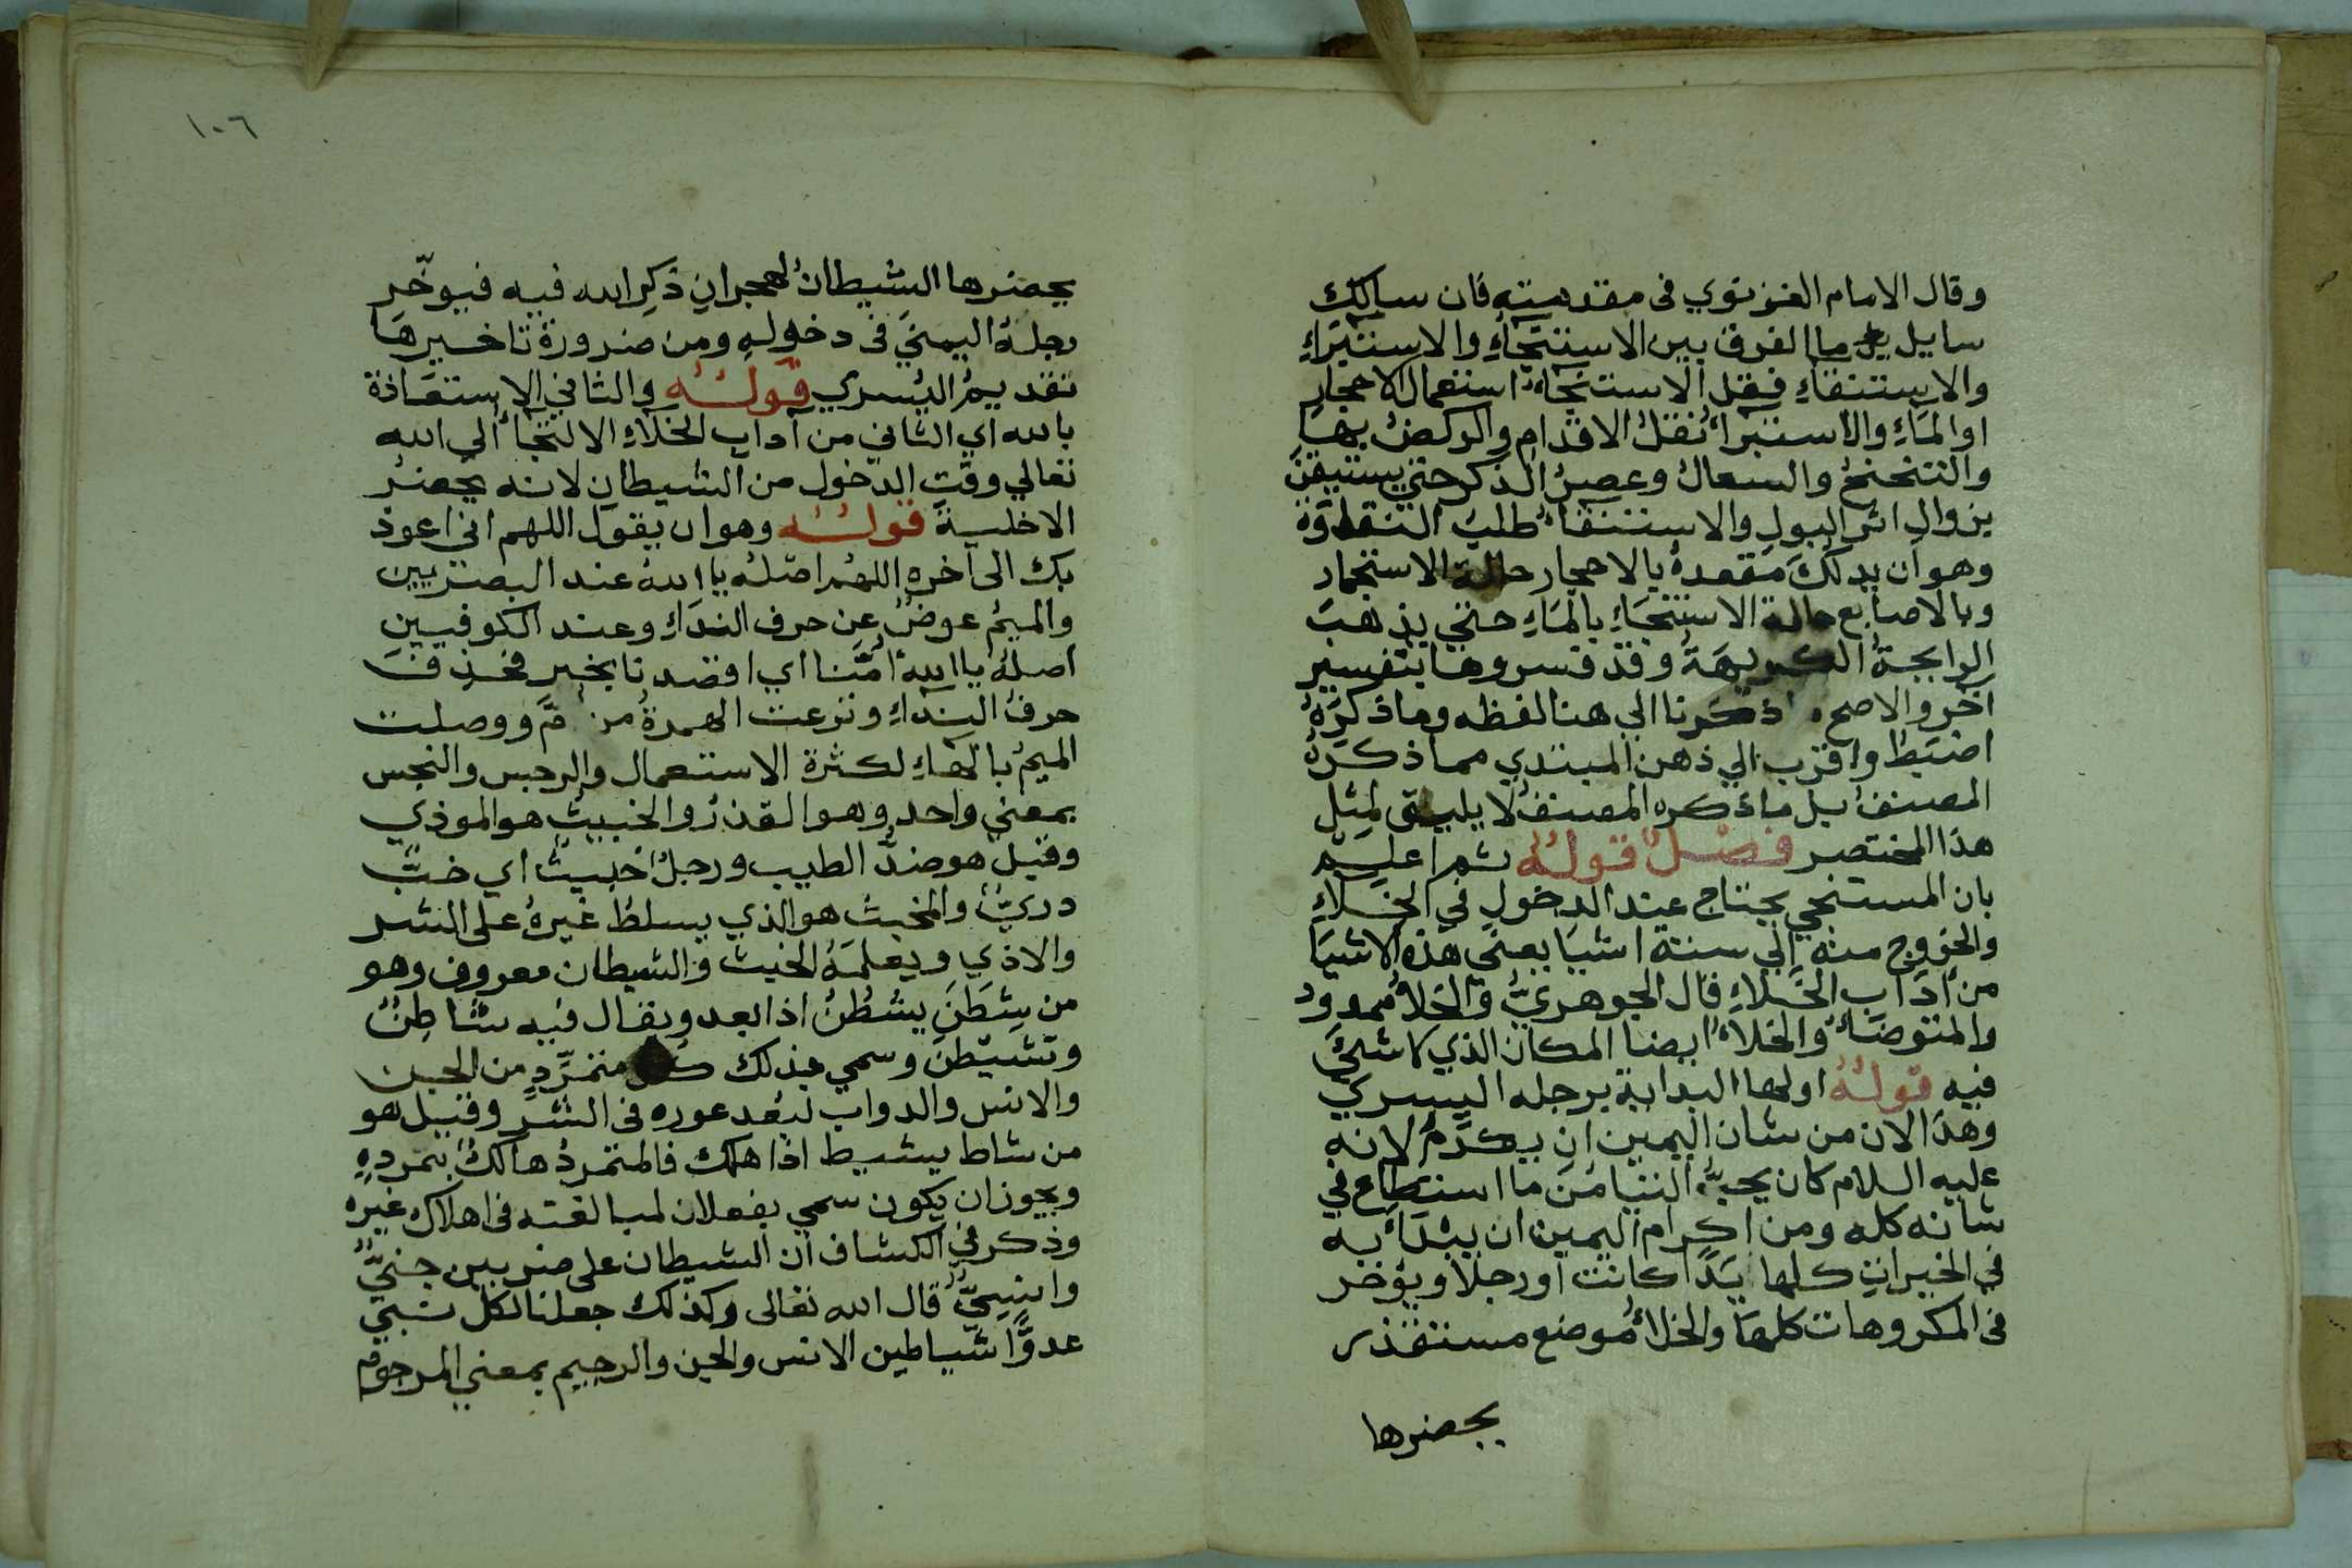 وقال الامام الغزنوي في مقدمته فان سالك
سايل ما الفرق بين الاستنجاءِ والاستبراءِ
والاستنقاءِ فقل الاستنجاءُ استعمال الاحجار
او الماءِ والاستبراءُ نقلُ الاقدام والركضُ بها
والتنحنحُ والسعالُ وعصرُ الذكر حتي يستيقن
بزوال اثر البول والاستنقاءُ طلبُ النقاوة
وهو ان يدلكَ مقعدهُ بالاحجار حالة الاستجمار
وبالاصابع حالة الاستنجاءِ بالماءِ حتي يذهب
الرايحةُ الكريهةُ وقد فسروها بتفسير
آخر والاصح ذكرنا الي هنا لفظه وما ذكرهُ
اضبط واقرب الي ذهن المبتدي مما ذكرهُ
المصنف بل ما ذكره المصنفُ لا يليق لمثل
هذا المختصر فصلٌ قولهُ ثم اعلم
بان المستنجي يحتاج عند الدخول في الخلاءِ
والخروج منه الي ستة اشيا يعني هذه الاشيا
من آداب الخلاءِ قال الجوهريُّ والخلاُ ممدود
والمتوضأُ والخلاءُ ايضا المكان الذي لا شئَ
فيه قولهُ اولها البداية برجله اليسري
وهذا لان من شان اليمين ان يكرّمَ لانه
عليه السلام كان يحبُّ التيامُن ما استطاع في
شانه كله ومن اكرام اليمين ان يبتدأ به
في الخيراتِ كلها يَدًا كانت او رجلا ويؤخر
في المكروهات كلها والخلأُ موضع مستقذر
يحضرها
١٠٦
يحضرها الشيطانُ لهجران ذكرِ الله فيه فيوخّر
رجلهُ اليمني في دخوله ومن ضرورة تاخيرها
تقديمُ اليُسري قولهُ والثاني الاستعاذة
بالله اي الثاني من آداب الخلاءِ الالتجاُ الي الله
تعالي وقت الدخول من الشيطان لانه يحضرُ
الاخلية قولهُ وهو ان يقول اللهم اني اعوذ
بك الى آخره اللهُم اصلهُ يا اللهُ عند البصريين
والميمُ عوضٌ عن حرف النداءِ وعند الكوفيين
اصلهُ يا اللهُ امَّنا اي اقصدنا بخير فحذف
حرفُ النداءِ ونزعت الهمزةُ من امَّ ووصلت
الميمُ بالهاءِ لكثرة الاستعمال والرجس والنجس
بمعني واحد وهو القذرُ والخبيث هو الموذي
وقيل هو ضدُّ الطيب ورجلٌ خبيثٌ اي خبٌّ
رديٌّ والمخبث هو الذي يسلطُ غيرهُ على الشر
والاذي ويعلمهُ الخبث والشيطان معروف وهو
من شطَنَ يشطُنُ اذا بعد ويقال فيه شاطِنٌ
وتشيّطن وسمي بذلك كل متمرّدٍ من الجن
والانس والدواب لبُعد غوره في الشرِّ وقيل هو
من شاط يشيط اذا هلك فالمتمردُ هالكٌ بتمرده
ويجوز ان يكون سمي بفعلان لمبالغته في اهلاك غيره
وذكر في الكشاف ان الشيطان على ضربين جنيٌّ
وانسيٌّ قال الله تعالى وكذلك جعلنا لكل نبي
عدوًّا شياطين الانس والجن والرجيم بمعني المرجوم